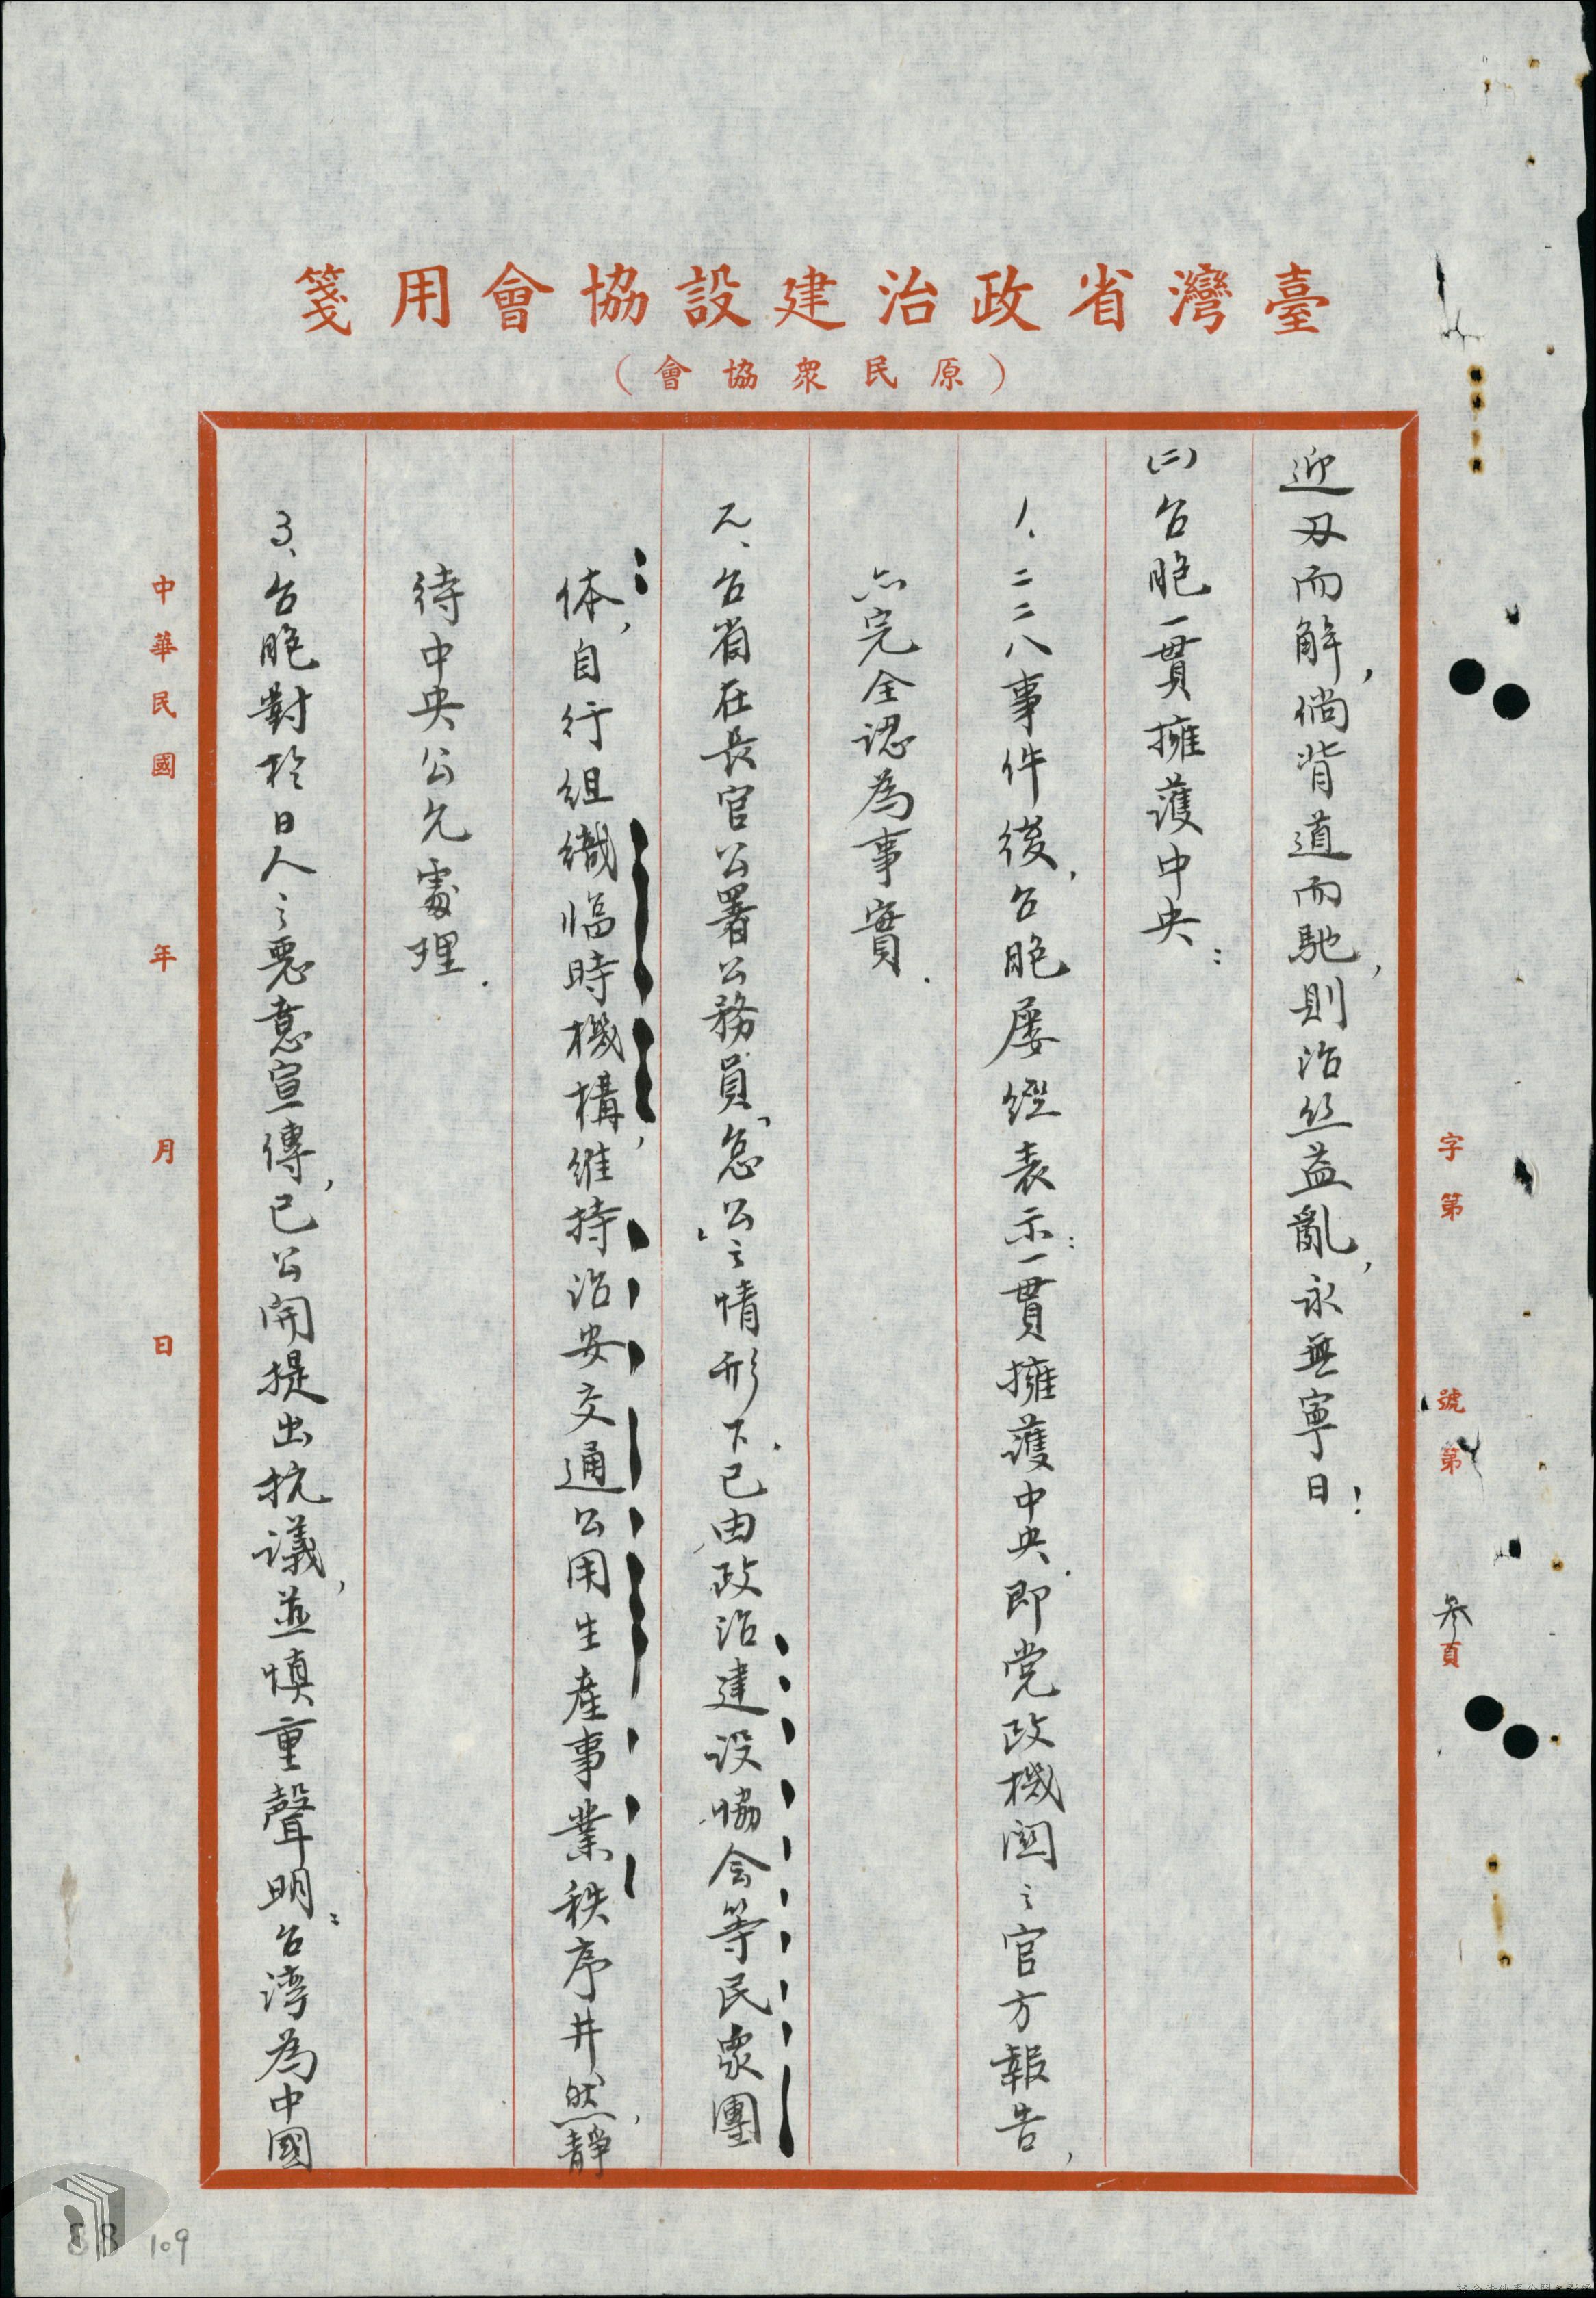 臺灣省政治建設協會用箋
（原民眾協會）
字第　號第叁頁
迎刃而解，倘背道而馳，則治丝益亂，永無寧日！
(二)台胞一貫擁護中央：
1、二二八事件後，台胞屡經表示：一貫擁護中央．即党政機関之官方報告，
亦完全認為事實．
2、台省在長官公署公務員「怠公」之情形下．已由政治建設協会等民衆團
体，自行組織臨時機構，維持治安交通公用生產事業秩序井然，靜
待中央公允處理．
3、台胞對於日人之惡意宣傳，已公開提出抗議，並慎重聲明：台湾為中國
中華民國　年　月　日
88 109